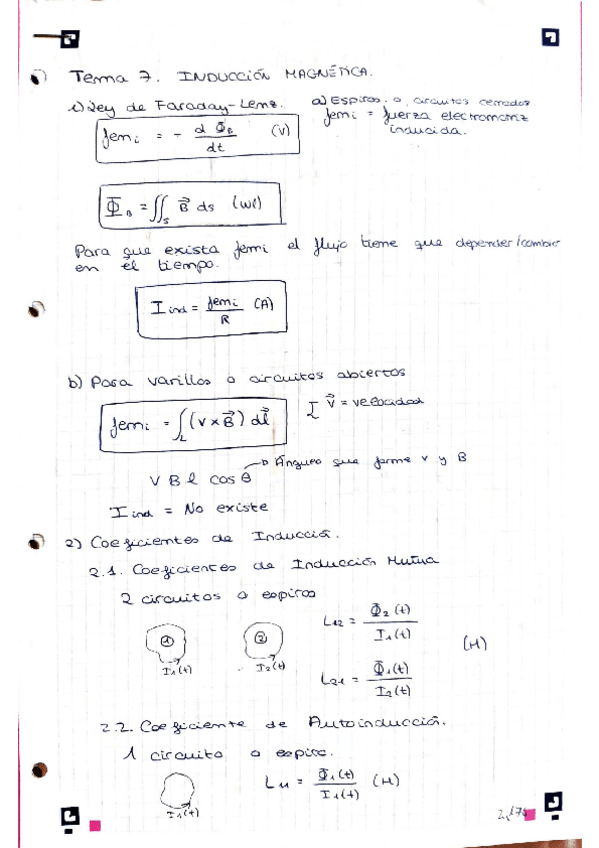 Tema 7. INDUCCIÓN MAGNÉTICA.
1) Ley de Faraday-Lenz. a) Espiras o circuitos cerrados
femi = - d Φ_B / dt (V)
femi = fuerza electromotriz
inducida.
Φ_B = ∬_S B⃗ ds (Wb)
Para que exista femi el flujo tiene que depender/cambiar
en el tiempo.
I ind = femi / R (A)
b) Para varillas o circuitos abiertos
femi = ∫_L (v x B⃗) dl⃗
v⃗ = velocidad
V B l cos θ → Ángulo que forme v y B
I ind = No existe
2) Coeficientes de Inducción.
2.1. Coeficientes de Inducción Mutua
2 circuitos o espiras
① I₁(t)
② I₂(t)
L₁₂ = Φ₂(t) / I₁(t)
(H)
L₂₁ = Φ₁(t) / I₂(t)
2.2. Coeficiente de Autoinducción.
1 circuito o espira.
I₁(t)
L₁₁ = Φ₁(t) / I₁(t) (H)